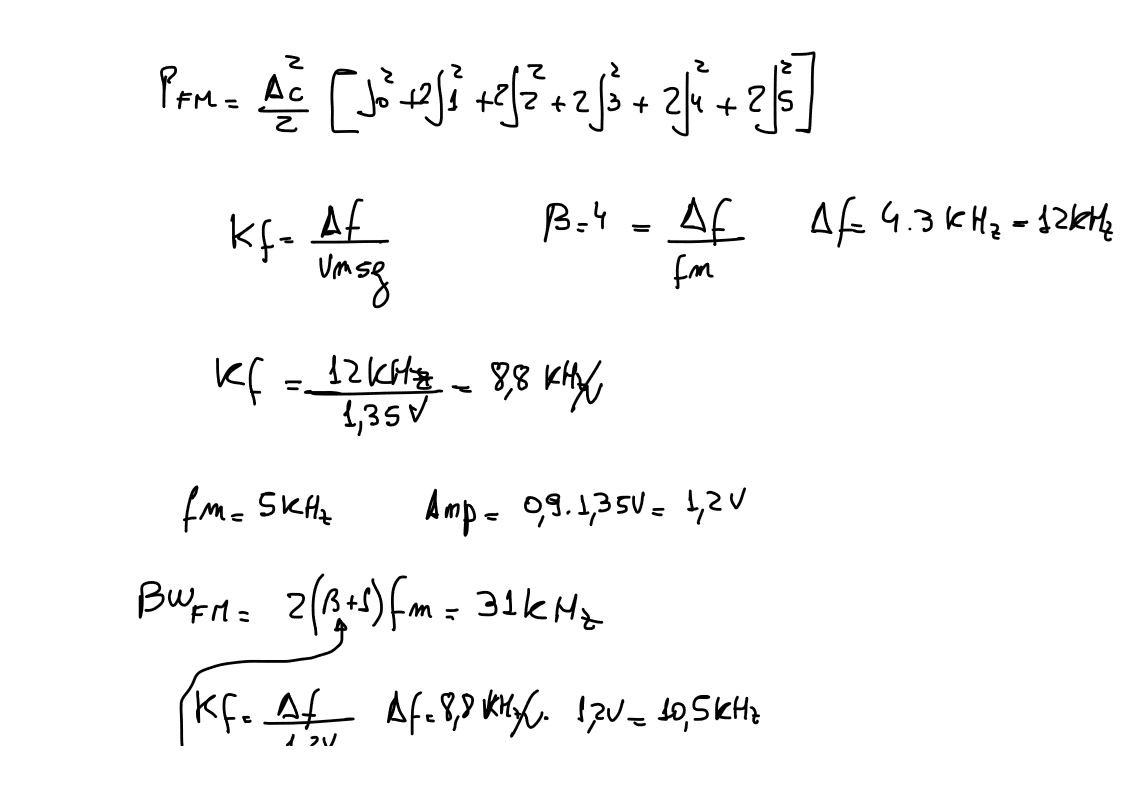 P_FM = Ac²/2 [J₀² + 2J₁² + 2J₂² + 2J₃² + 2J₄² + 2J₅²]
Kf = Δf/Vmsg β = 4 = Δf/fm Δf = 4.3 KHz = 12KHz
Kf = 12KHz/1,35V = 8,8 KHz/V
fm = 5KHz Amp = 0,9.1,35V = 1,2V
BW_FM = 2(β+1)fm = 31KHz
Kf = Δf/1,2V Δf = 8,8 KHz/V. 1,2V = 10,5KHz